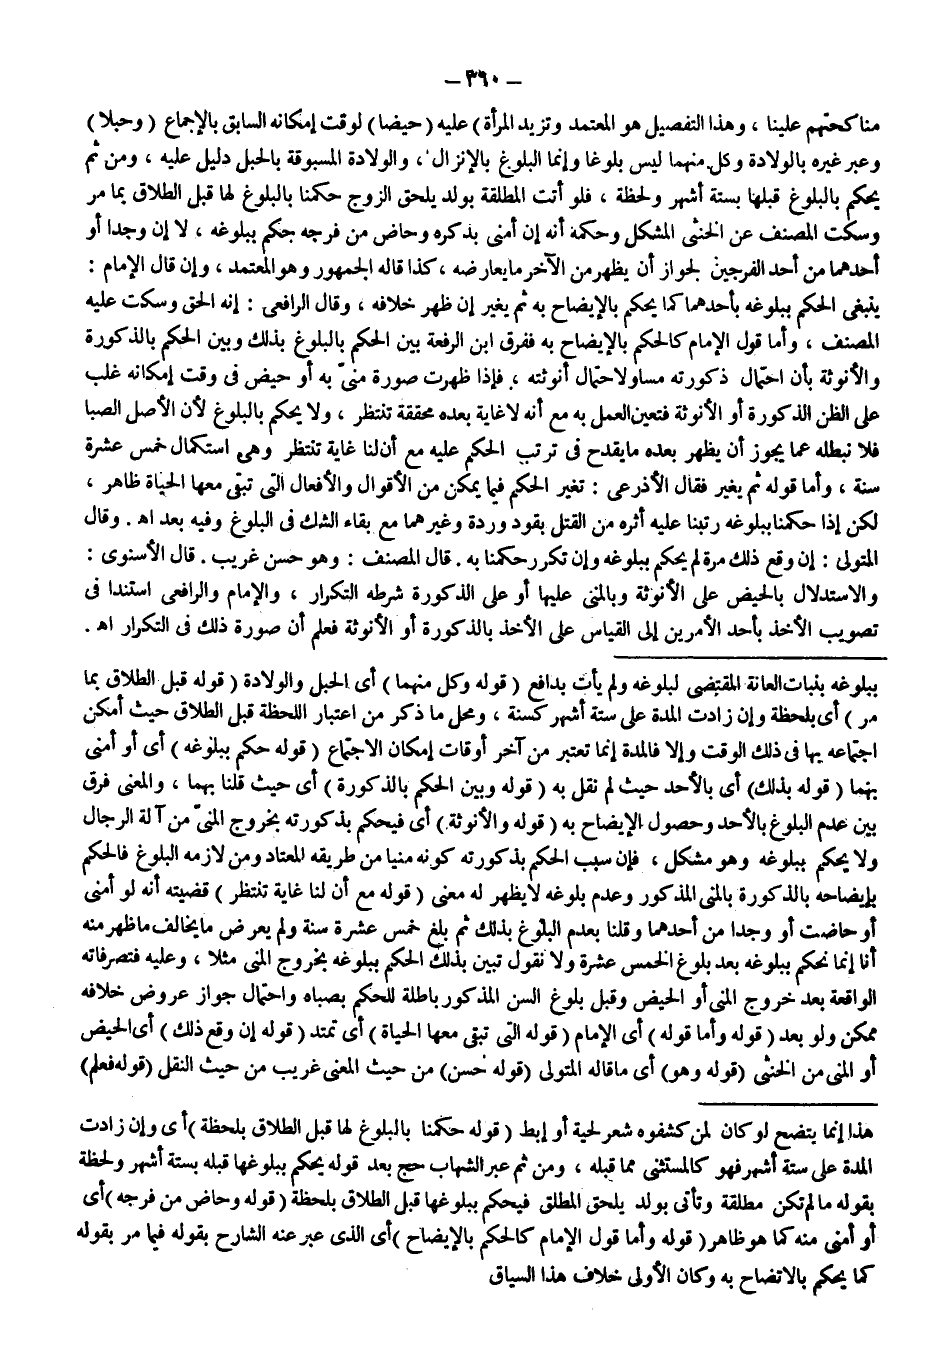 — ٣٦٠ —
مناكحتهم علينا ، وهذا التفصيل هو المعتمد وتزيد المرأة) عليه (حيضا) لوقت إمكانه السابق بالإجماع (وحبلا)
وعبر غيره بالولادة وكل منهما ليس بلوغا وإنما البلوغ بالإنزال ، والولادة المسبوقة بالحبل دليل عليه ، ومن ثم
يحكم بالبلوغ قبلها بستة أشهر ولحظة ، فلو أتت المطلقة بولد يلحق الزوج حكمنا بالبلوغ لها قبل الطلاق بما مر
وسكت المصنف عن الخنثى المشكل وحكمه أنه إن أمنى بذكره وحاض من فرجه حكم ببلوغه ، لا إن وجدا أو
أحدهما من أحد الفرجين لجواز أن يظهر من الآخر ما يعارضه ، كذا قاله الجمهور وهو المعتمد ، وإن قال الإمام :
ينبغى الحكم ببلوغه بأحدهما كما يحكم بالإيضاح به ثم يغير إن ظهر خلافه ، وقال الرافعى : إنه الحق وسكت عليه
المصنف ، وأما قول الإمام كالحكم بالإيضاح به ففرق ابن الرفعة بين الحكم بالبلوغ بذلك وبين الحكم بالذكورة
والأنوثة بأن احتمال ذكورته مساو لاحتمال أنوثته ، فإذا ظهرت صورة منىّ به أو حيض فى وقت إمكانه غلب
على الظن الذكورة أو الأنوثة فتعين العمل به مع أنه لا غاية بعده محققة تنتظر ، ولا يحكم بالبلوغ لأن الأصل الصبا
فلا نبطله عما يجوز أن يظهر بعده ما يقدح فى ترتب الحكم عليه مع أن لنا غاية تنتظر وهى استكمال خمس عشرة
سنة ، وأما قوله ثم يغير فقال الأذرعى : تغير الحكم فيما يمكن من الأقوال والأفعال التى تبقى معها الحياة ظاهر ،
لكن إذا حكمنا ببلوغه رتبنا عليه أثره من القتل بقود وردة وغيرهما مع بقاء الشك فى البلوغ وفيه بعد اه . وقال
المتولى : إن وقع ذلك مرة لم يحكم ببلوغه وإن تكرر حكمنا به . قال المصنف : وهو حسن غريب . قال الأسنوى :
والاستدلال بالحيض على الأنوثة وبالمنى عليها أو على الذكورة شرطه التكرار ، والإمام والرافعى استندا فى
تصويب الأخذ بأحد الأمرين إلى القياس على الأخذ بالذكورة أو الأنوثة فعلم أن صورة ذلك فى التكرار اه .
ببلوغه بنبات العانة المقتضى لبلوغه ولم يأت بدافع ( قوله وكل منهما ) أى الحبل والولادة ( قوله قبل الطلاق بما
مر ) أى بلحظة وإن زادت المدة على ستة أشهر كسنة ، ومحل ما ذكر من اعتبار اللحظة قبل الطلاق حيث أمكن
اجتماعه بها فى ذلك الوقت وإلا فالمدة إنما تعتبر من آخر أوقات إمكان الاجتماع ( قوله حكم ببلوغه ) أى أو أمنى
بهما ( قوله بذلك ) أى بالأحد حيث لم نقل به ( قوله وبين الحكم بالذكورة ) أى حيث قلنا بهما ، والمعنى فرق
بين عدم البلوغ بالأحد وحصول الإيضاح به ( قوله والأنوثة ) أى فيحكم بذكورته بخروج المنىّ من آلة الرجال
ولا يحكم ببلوغه وهو مشكل ، فإن سبب الحكم بذكورته كونه منيا من طريقه المعتاد ومن لازمه البلوغ فالحكم
بإيضاحه بالذكورة بالمنى المذكور وعدم بلوغه لا يظهر له معنى ( قوله مع أن لنا غاية تنتظر ) قضيته أنه لو أمنى
أو حاضت أو وجدا من أحدهما وقلنا بعدم البلوغ بذلك ثم بلغ خمس عشرة سنة ولم يعرض ما يخالف ما ظهر منه
أنا إنما نحكم ببلوغه بعد بلوغ الخمس عشرة ولا نقول تبين بذلك الحكم ببلوغه بخروج المنى مثلا ، وعليه فتصرفاته
الواقعة بعد خروج المنى أو الحيض وقبل بلوغ السن المذكور باطلة للحكم بصباه واحتمال جواز عروض خلافه
ممكن ولو بعد ( قوله وأما قوله ) أى الإمام ( قوله التى تبقى معها الحياة ) أى تمتد ( قوله إن وقع ذلك ) أى الحيض
أو المنى من الخنثى (قوله وهو) أى ما قاله المتولى (قوله حسن) من حيث المعنى غريب من حيث النقل (قوله فعلم)
هذا إنما يتضح لو كان لمن كشفوه شعر لحية أو إبط ( قوله حكمنا بالبلوغ لها قبل الطلاق بلحظة ) أى وإن زادت
المدة على ستة أشهر فهو كالمستثنى مما قبله ، ومن ثم عبر الشهاب حج بعد قوله يحكم ببلوغها قبله بستة أشهر ولحظة
بقوله ما لم تكن مطلقة وتأتى بولد يلحق المطلق فيحكم ببلوغها قبل الطلاق بلحظة ( قوله وحاض من فرجه ) أى
أو أمنى منه كما هو ظاهر ( قوله وأما قول الإمام كالحكم بالإيضاح ) أى الذى عبر عنه الشارح بقوله فيما مر بقوله
كما يحكم بالاتضاح به وكان الأولى خلاف هذا السياق